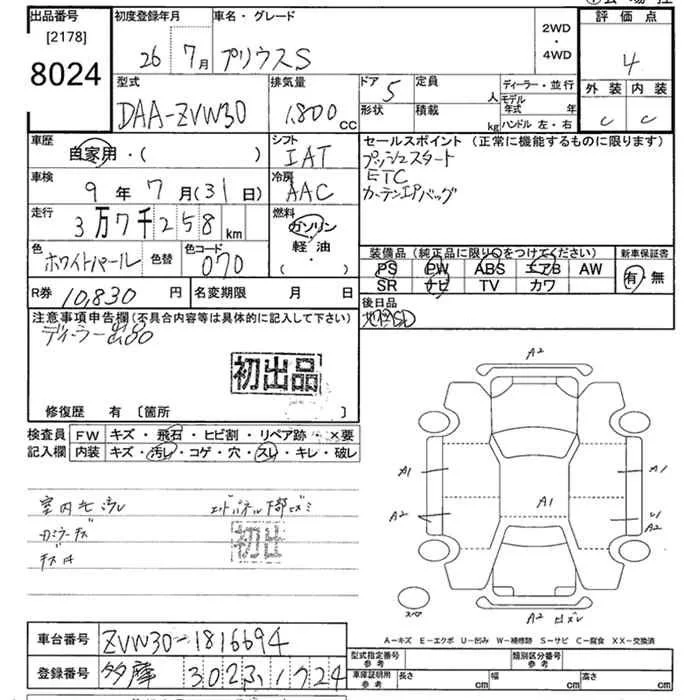 出品番号
[2178]
8024
初度登録年月
26 7月
車名・グレード
プリウスS
2WD
・
4WD
評価点
4
外装 内装
C C
型式
DAA-ZVW30
排気量
1,800 CC
ドア 5
形状
定員 人
積載 kg
ディーラー・並行
モデル年式 年
ハンドル 左・右
車歴
自家用・( )
シフト
IAT
セールスポイント (正常に機能するものに限ります)
プッシュスタート
ETC
カーテンエアバッグ
車検
9年 7月(31日)
冷房
AAC
走行
3万7千258km
燃料
ガソリン
軽油
( )
色
ホワイトパール
色替
色コード
070
装備品(純正品に限り○をつけてください)
PS PW ABS エアB AW
SR ナビ TV カワ
新車保証書
有・無
R券 10,830円
名変期限 月 日
後日品
注意事項申告欄(不具合内容等は具体的に記入して下さい)
ディーラー出品
初出品
修復歴 有 [箇所 ]
検査員
記入欄
FW キズ・飛石・ヒビ割・リペア跡・×要
内装 キズ・汚レ・コゲ・穴・スレ・キレ・破レ
室内 汚レ
エンドパネル下部
初出
A2
A1 A1
A1
A2
A2
A2
スペア
A-キズ E-エクボ U-凹み W-補修跡 S-サビ C-腐食 XX-交換済
車台番号 ZVW30-1816694
登録番号 多摩 302 1724
型式指定番号
参考
類別区分番号
参考
車庫証明用
参考
長さ cm
幅 cm
高さ cm